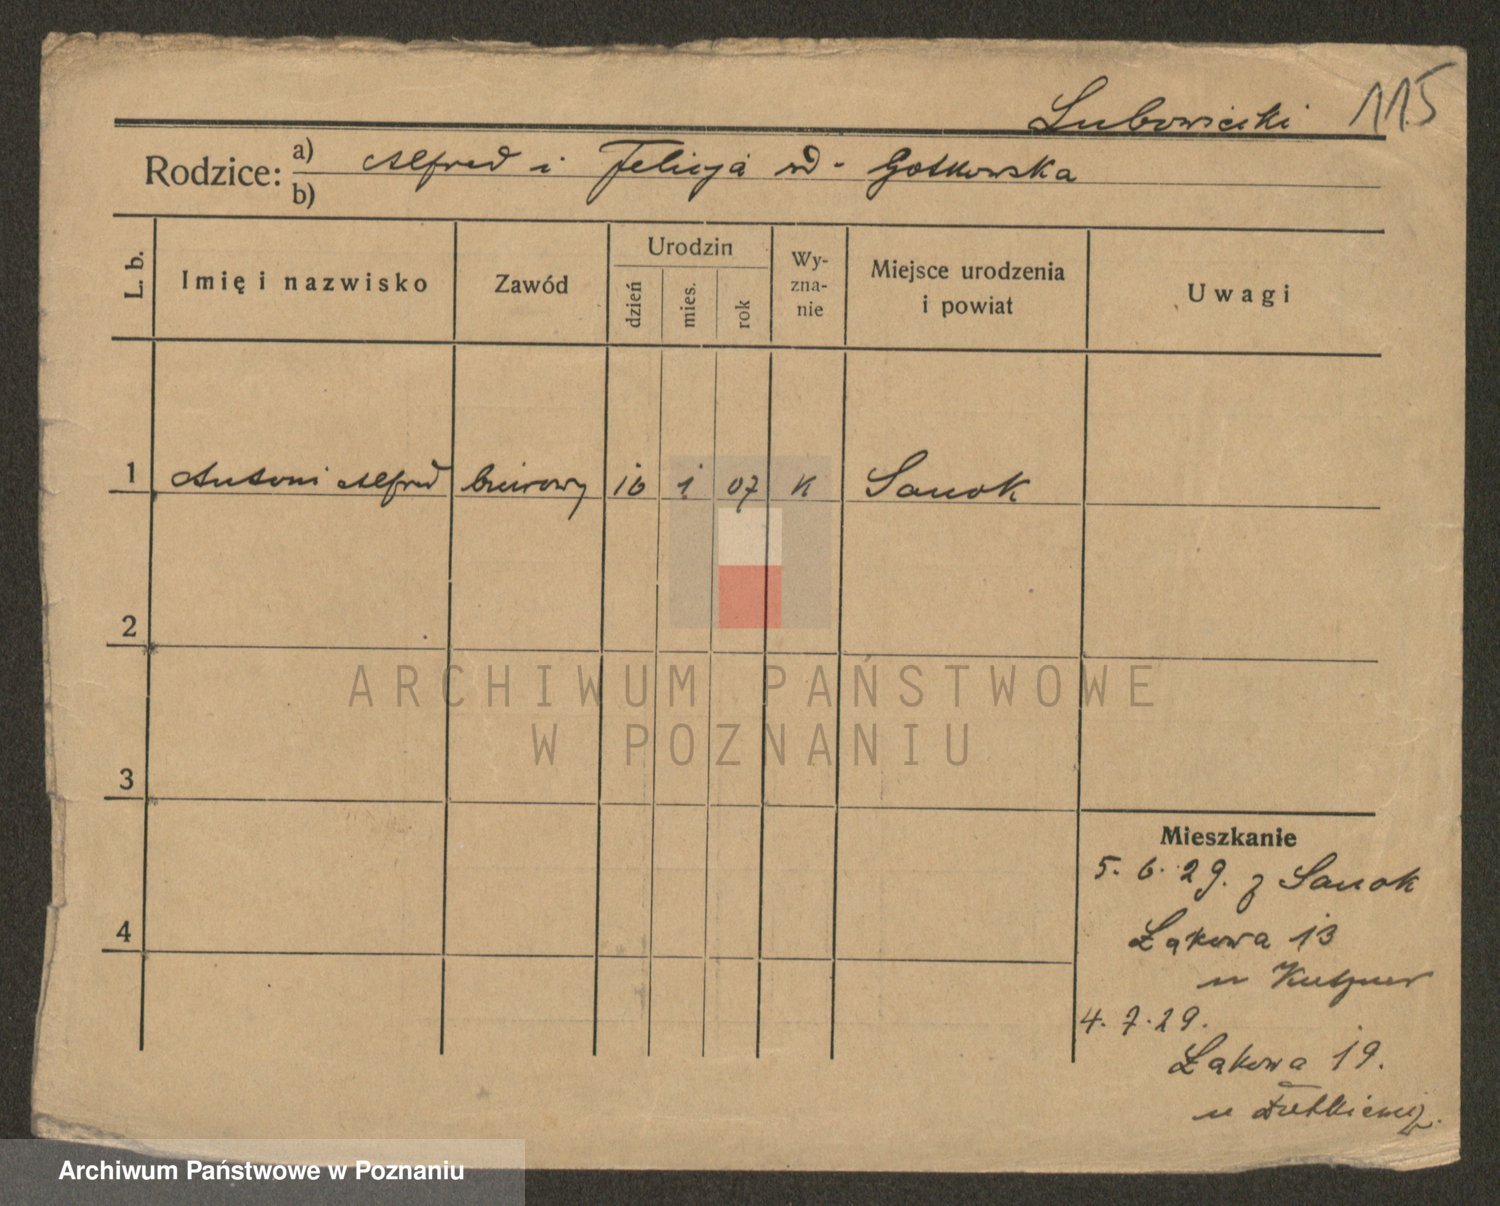 Lubowiecki 115
Rodzice: a) Alfred i Felicja
b)
L. b.
Imię i nazwisko
Zawód
Urodzin
dzień
mies.
rok
Wy-
zna-
nie
Miejsce urodzenia
i powiat
Uwagi
1 Antoni Alfred biurowy 16 1 07 K Sanok
2
3
4
Mieszkanie
5. 6. 29. z Sanok
Łąkowa 13
u Kutzner
4. 7. 29.
Łąkowa 19.
u
ARCHIWUM PAŃSTWOWE
W POZNANIU
Archiwum Państwowe w Poznaniu